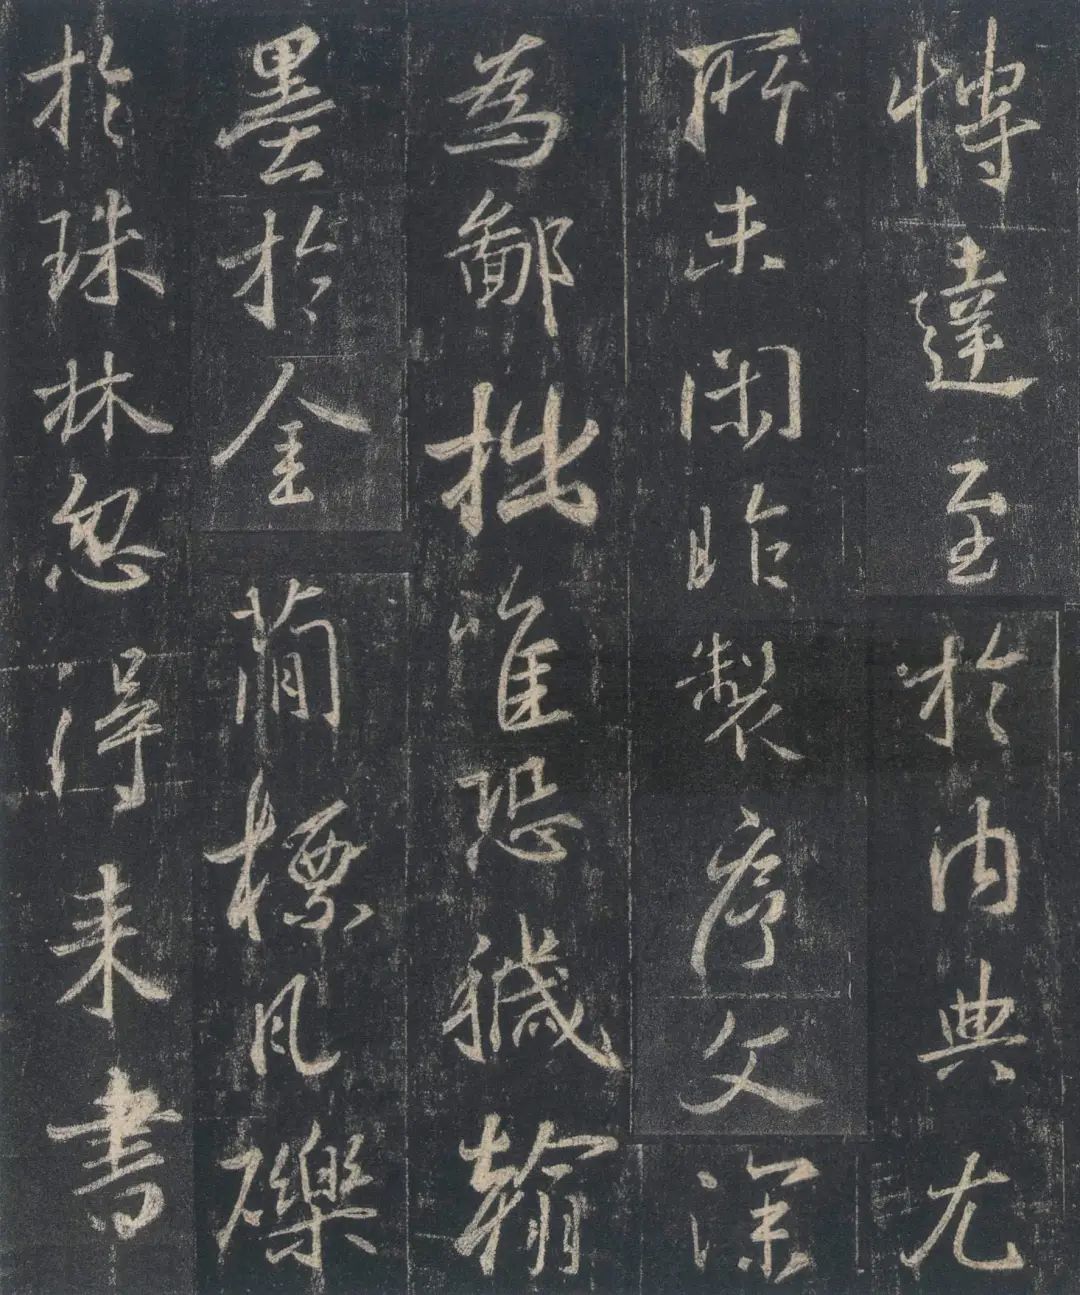 慱達至於內典尤
所未閑昨製序文深
為鄙拙唯恐穢翰
墨於金蕳標風礫
於珠林忽得来書